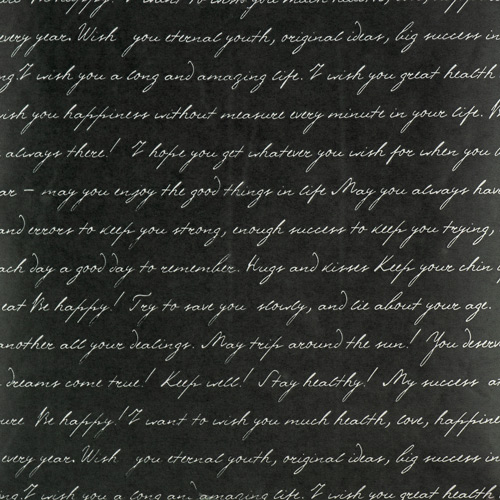 Be happy! I want to wish you much health, love, happine
every year. Wish you eternal youth, original ideas, big success in
ng. I wish you a long and amazing life. I wish you great health
ish you happiness without measure every minute in your life.
always there! I hope you get whatever you wish for when you
ar – may you enjoy the good things in life May you always hav
and errors to keep you strong, enough success to keep you trying,
ach day a good day to remember. Hugs and kisses Keep your chin
eat Be happy! Try to save you slowly, and lie about your age.
another all your dealings. May trip around the sun! You deserv
dreams come true! Keep well! Stay healthy! My success
ure Be happy! I want to wish you much health, love, happine
every year. Wish you eternal youth, original ideas, big success in
ng. I wish you a long and amazing life. I wish you great health